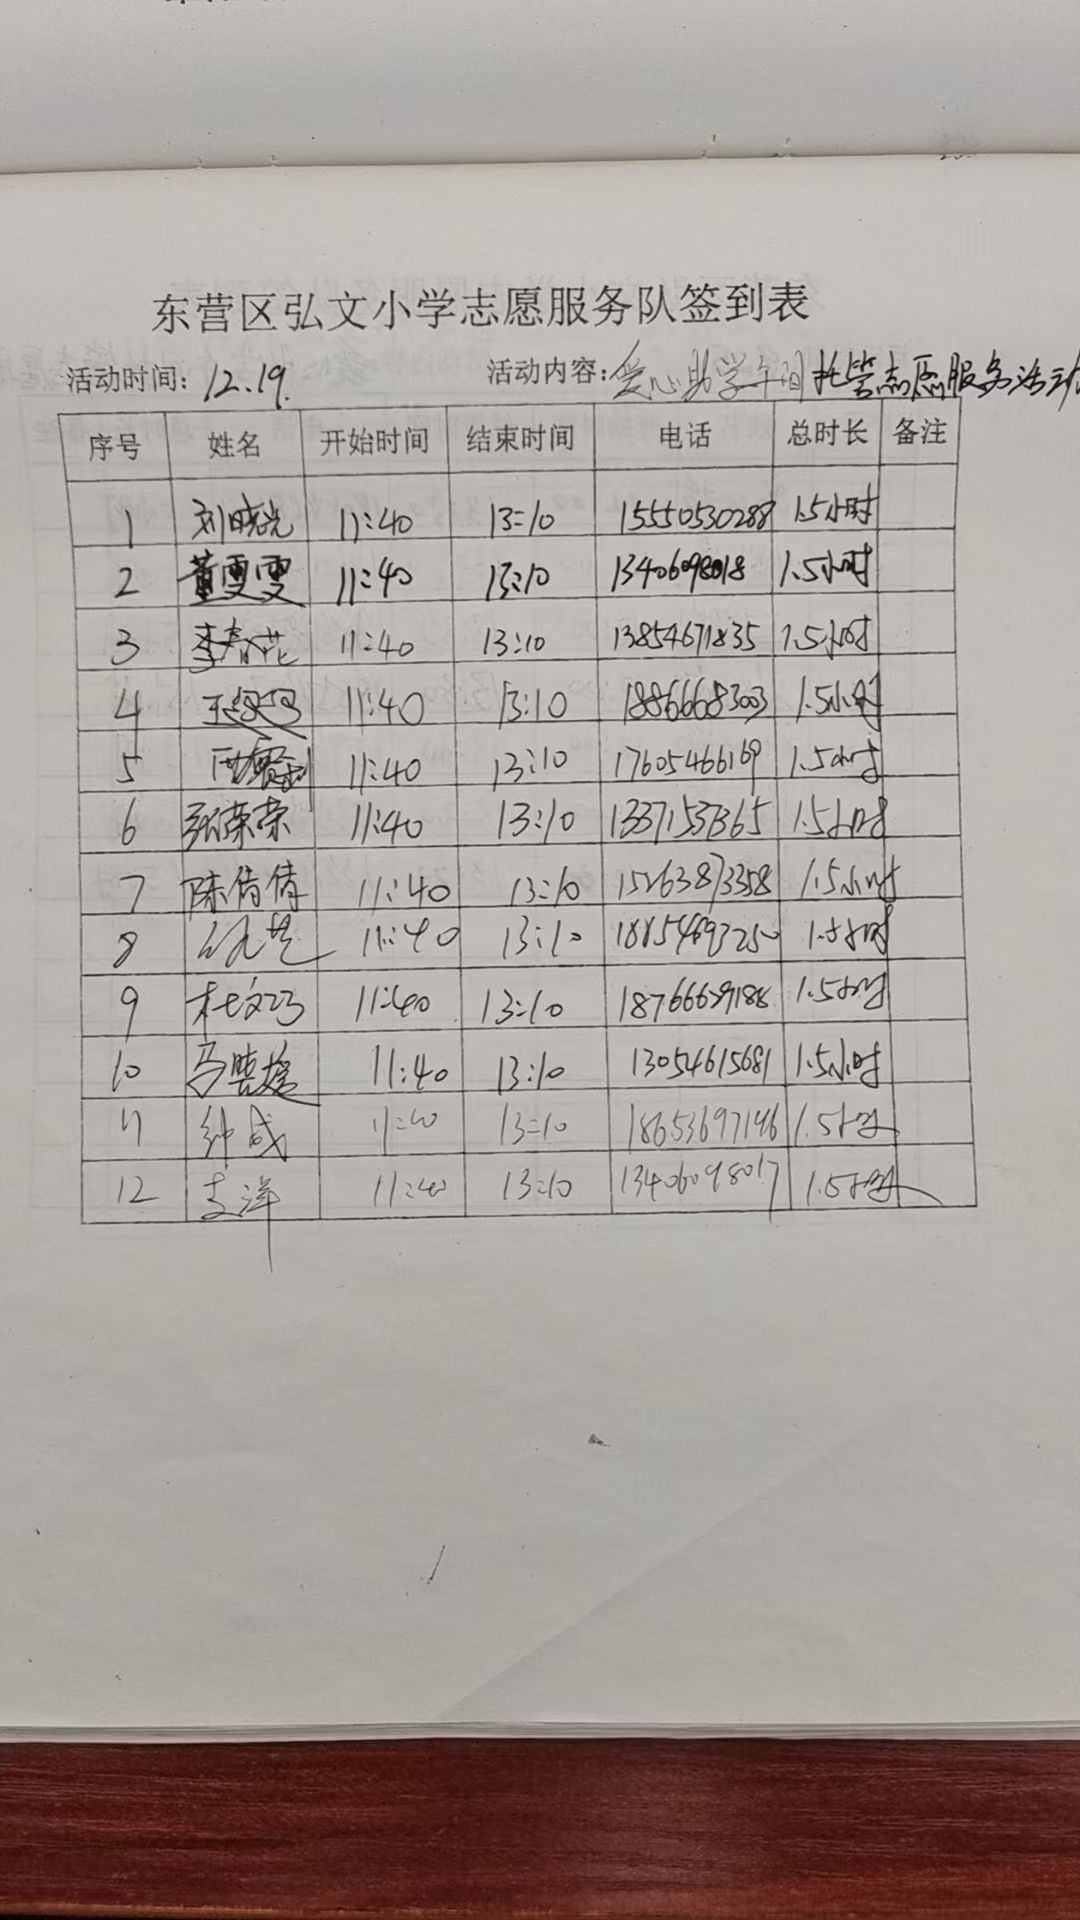 东营区弘文小学志愿服务队签到表
活动时间：12.19. 活动内容：爱心助学午间托管志愿服务活动
序号 姓名 开始时间 结束时间 电话 总时长 备注
1 刘晓光 11:40 13:10 15550530288 1.5小时
2 董雯雯 11:40 13:10 13406098018 1.5小时
3 李春花 11:40 13:10 13854671835 1.5小时
4 11:40 13:10 18866683003 1.5小时
5 11:40 13:10 17605466169 1.5小时
6 张荣荣 11:40 13:10 13371537365 1.5小时
7 陈倩倩 11:40 13:10 15263873358 1.5小时
8 11:40 13:10 18854693250 1.5小时
9 杜文巧 11:40 13:10 18766659188 1.5小时
10 11:40 13:10 13054615681 1.5小时
11 钟成 11:40 13:10 18653697146 1.5小时
12 支洋 11:40 13:10 13406098017 1.5小时